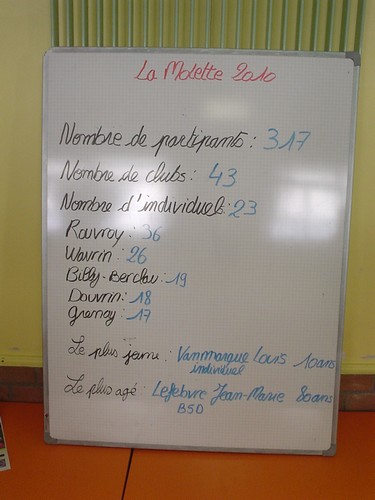 La Molette 2010
Nombre de partipants : 317
Nombre de clubs : 43
Nombre d'individuels : 23
Rouvroy : 36
Wavrin : 26
Billy-Berclau : 19
Douvrin : 18
Grenay : 17
Le plus jeune : Vanmarque Louis 10 ans
individuel
Le plus agé : Lefebvre Jean-Marie 80 ans
BSD